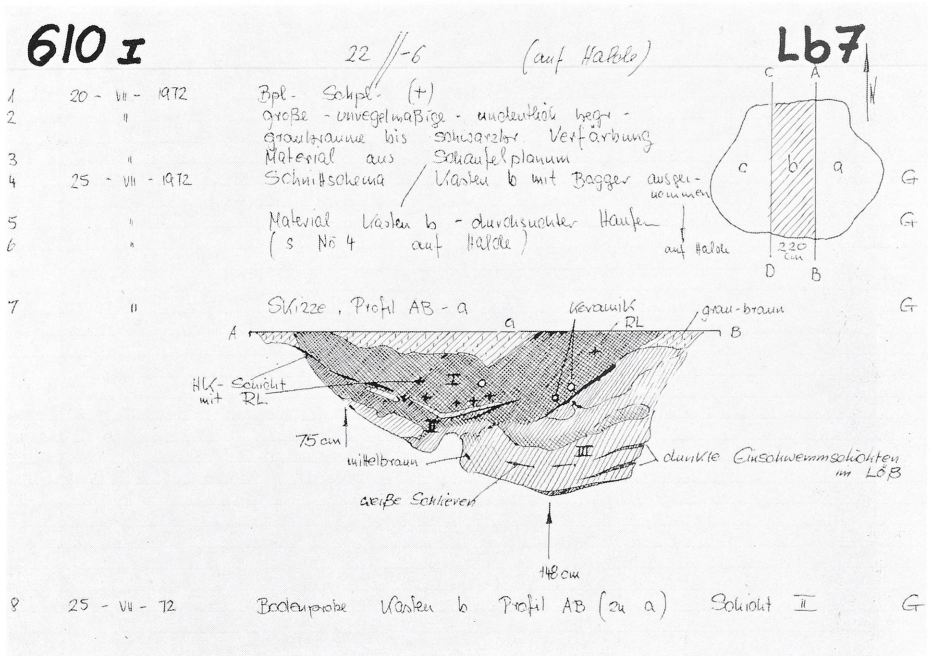 610 I
22 // -6 (auf Halde)
Lb7
C A
N
1 20 - VII - 1972 Bpl- Schpl- (+)
2 " große - unregelmäßige - undeutlich begr-
graubraune bis schwarzbr Verfärbung
3 " Material aus Schaufelplanum
4 25 - VII - 1972 Schnittschema Kasten b mit Bagger ausge-
nommen
G
c b a
5 " Material Kasten b - durchsuchter Haufen
G
6 " (s No 4 auf Halde)
auf Halde
220
cm
D B
7 " Skizze, Profil AB - a
G
A a B
Keramik
RL
grau-braun
HK-Schicht
mit RL
I
II
III
75 cm
mittelbraun
weiße Schlieren
dunkle Einschwemmschichten
im Löß
148 cm
8 25 - VII - 72 Bodenprobe Kasten b Profil AB (zu a) Schicht II G